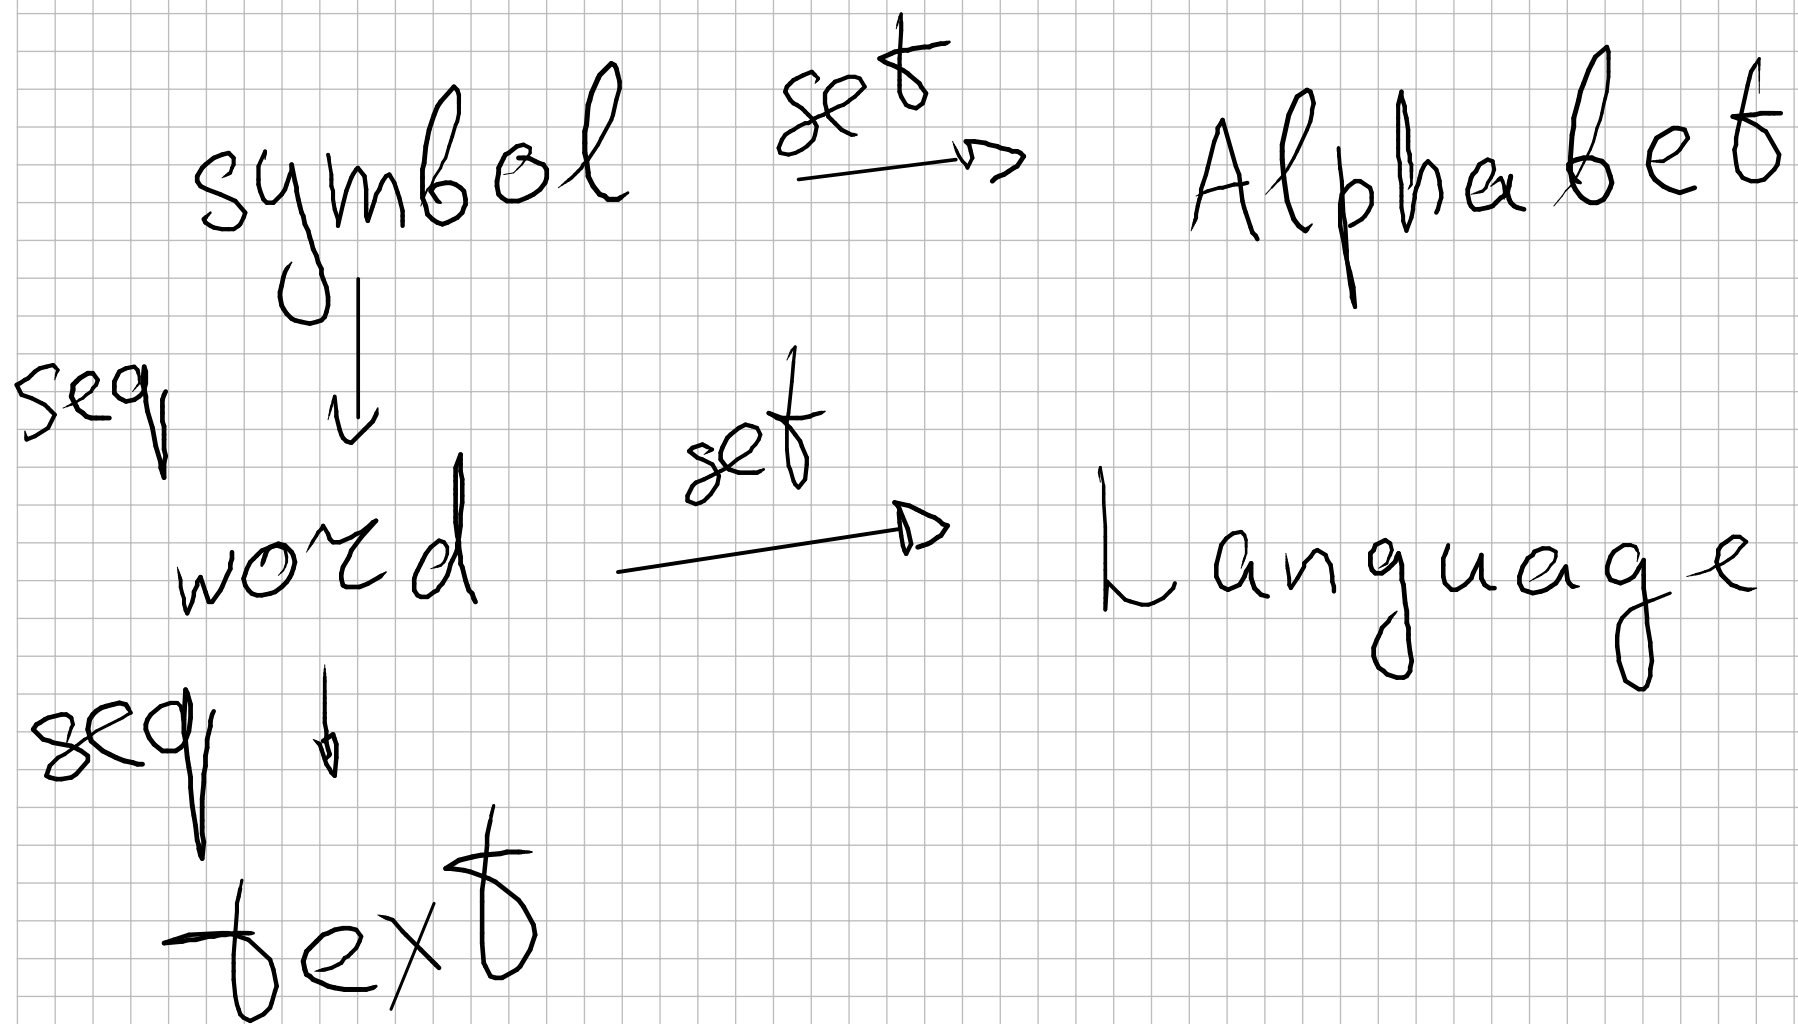 symbol set Alphabet
seq
word set Language
seq
text